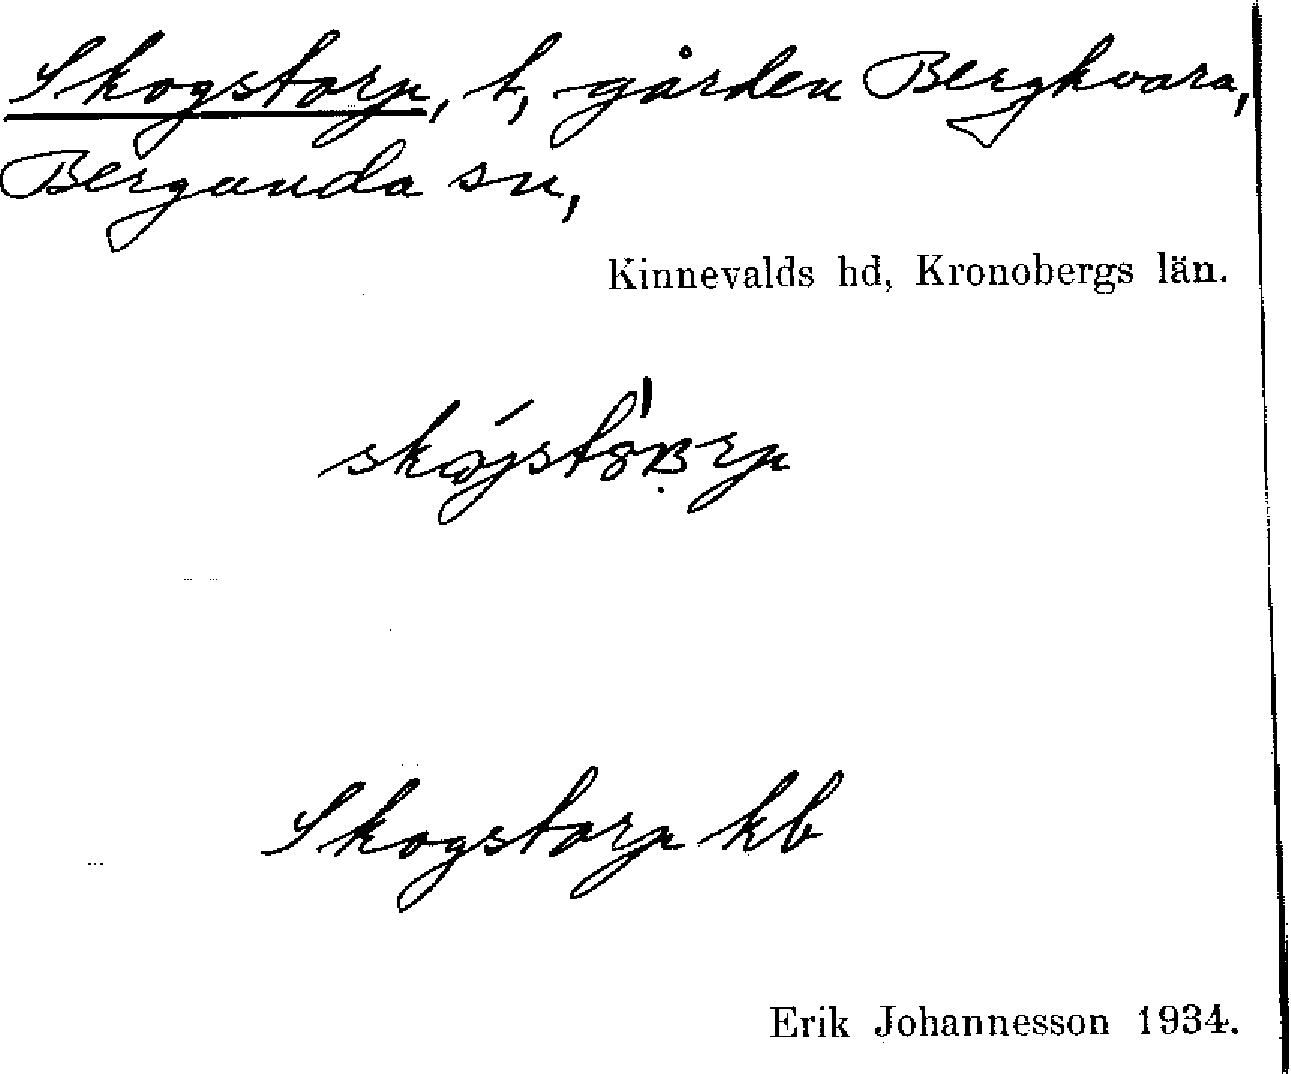 Skogstorp, t, gården Bergkvara,
Bergunda sn,
Kinnevalds hd, Kronobergs län.
Skogstorp kb
Erik Johannesson 1934.